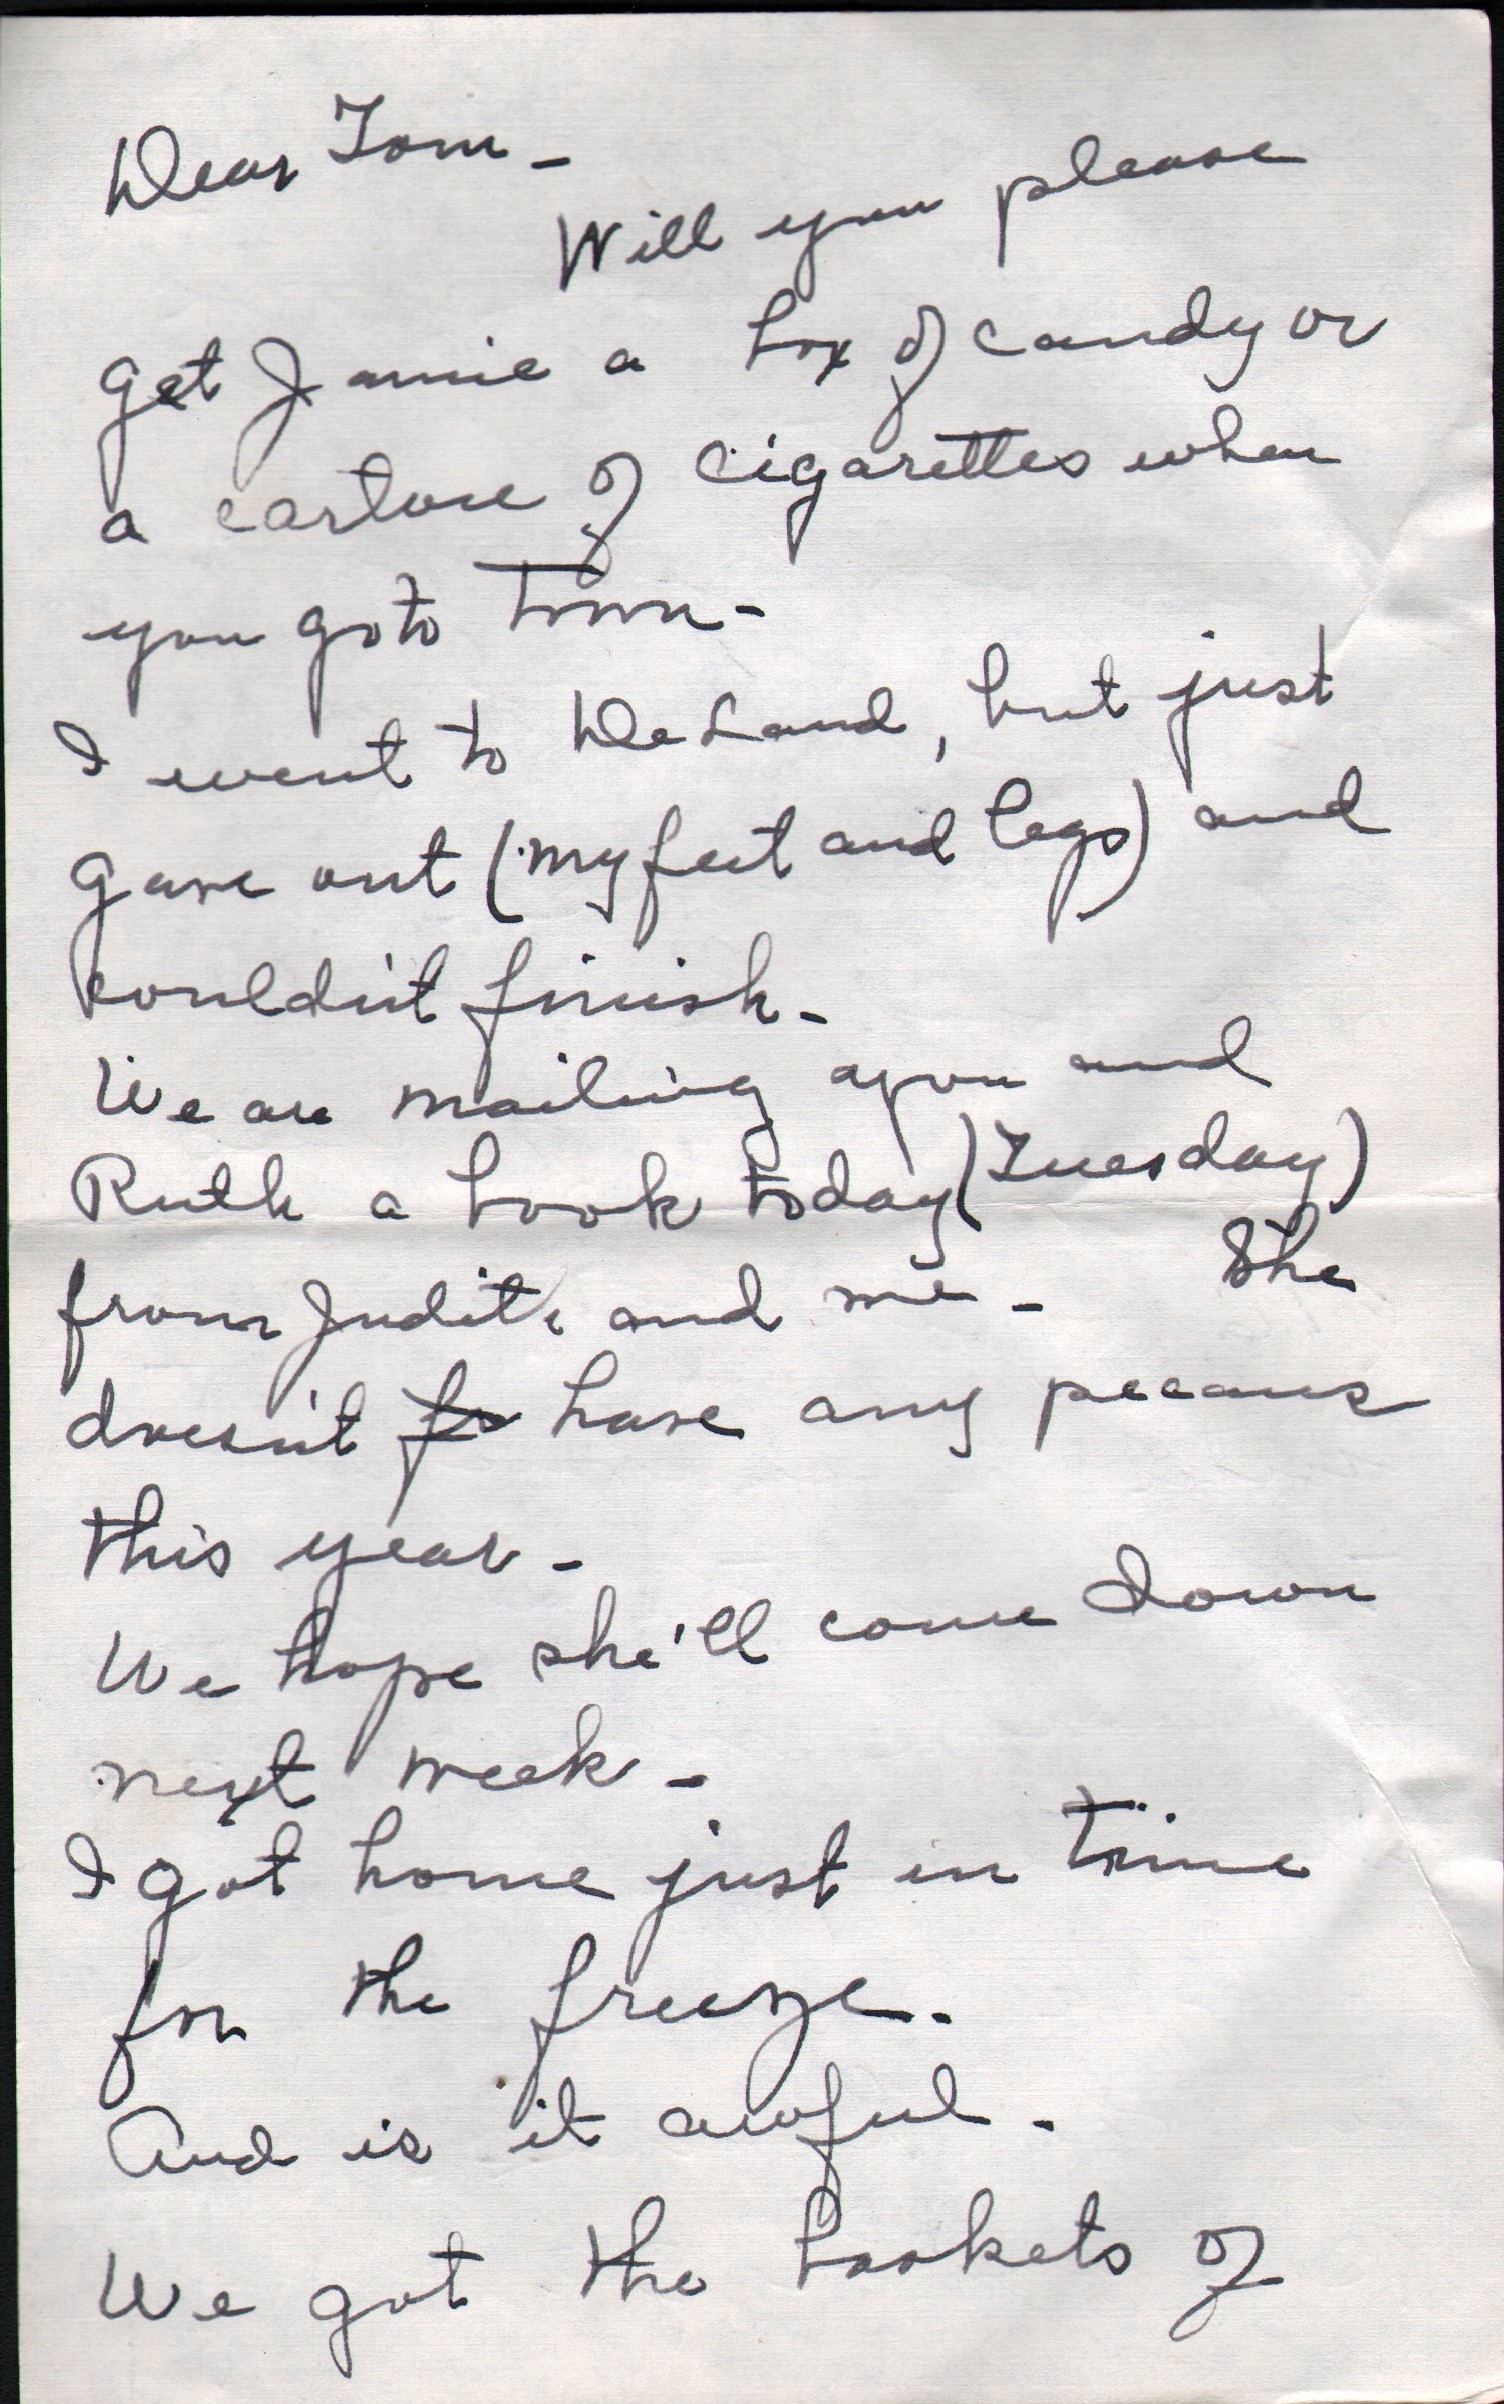 Dear Tom -
Will you please
get Jamie a box of candy or
a carton of cigarettes when
you go to town -
I went to DeLand, but just
gave out (my feet and legs) and
couldn't finish -
We are mailing you and
Ruth a book today (Tuesday)
from Judith and me - She
doesn't have any pecans
this year -
We hope she'll come down
next week -
I got home just in time
for the freeze -
And is it awful -
We got the baskets of